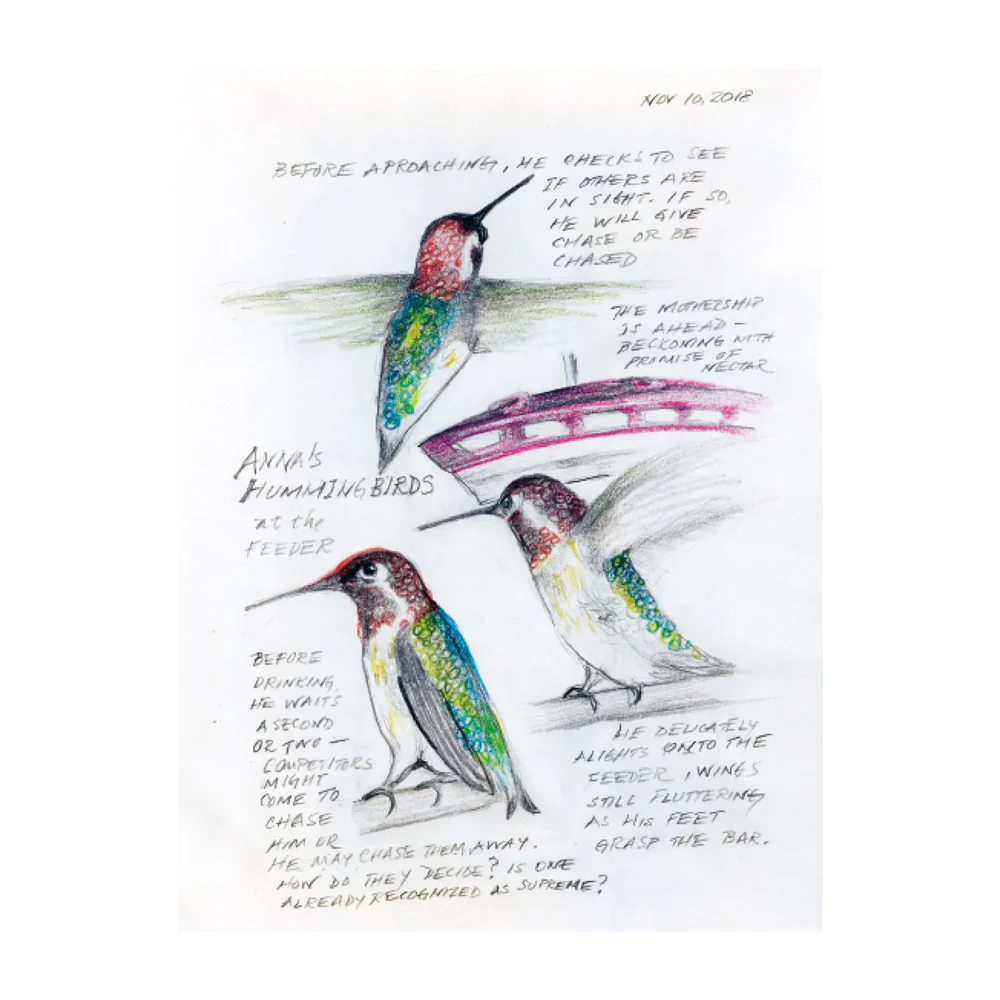 NOV 10, 2018
BEFORE APROACHING, HE CHECKS TO SEE
IF OTHERS ARE
IN SIGHT. IF SO,
HE WILL GIVE
CHASE OR BE
CHASED
THE MOTHERSHIP
IS AHEAD —
BECKONING WITH
PROMISE OF
NECTAR
ANNA'S
HUMMINGBIRDS
at the
FEEDER
BEFORE
DRINKING,
HE WAITS
A SECOND
OR TWO —
COMPETITORS
MIGHT
COME TO
CHASE
HIM OR
HE MAY CHASE THEM AWAY.
HOW DO THEY DECIDE? IS ONE
ALREADY RECOGNIZED AS SUPREME?
HE DELICATELY
ALIGHTS ONTO THE
FEEDER, WINGS
STILL FLUTTERING
AS HIS FEET
GRASP THE BAR.